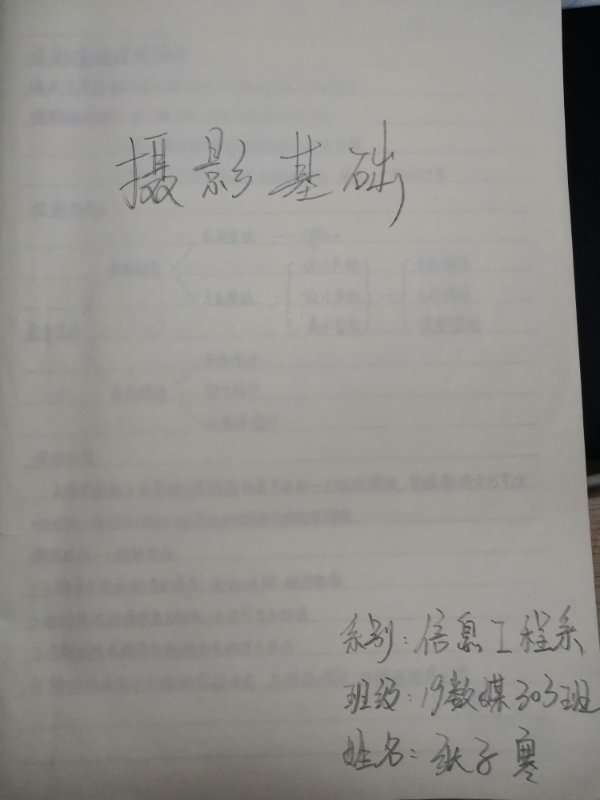 摄影基础
系别：信息工程系
班级：19数媒303班
姓名：张子寒